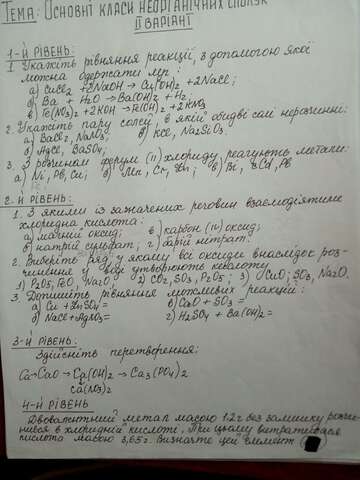 Тема: Основні класи неорганічних сполук
ІІ варіант
1-й рівень:
1. Укажіть рівняння реакції, з допомогою якої
можна одержати луг:
а) CuCl2 + 2NaOH → Cu(OH)2 + 2NaCl;
б) Ba + H2O → Ba(OH)2 + H2;
в) Fe(NO3)2 + 2KOH → Fe(OH)2 + 2KNO3
2. Укажіть пару солей, в якій обидві солі нерозчинні:
а) BaCl2, NaNO3; в) KCl, Na2SiO3.
б) AgCl, BaSO4;
3. З розчином ферум (ІІ) хлориду реагують метали:
а) Ni, Pb, Cu; б) Mn, Cr, Zn; в) Bi, Cd, Pb
2-й рівень:
1. З якими із зазначених речовин взаємодіятиме
хлоридна кислота:
а) магній оксид; в) карбон (IV) оксид;
б) натрій сульфат; г) барій нітрат.
2. Виберіть ряд у якому всі оксиди внаслідок роз-
чинення у воді утворюють кислоту
1) P2O5, FeO, Na2O 2) CO2, SO3, P2O5; 3) CuO; SO2, Na2O.
3. Допишіть рівняння можливих реакцій:
а) Cu + ZnSO4 = в) CaO + SO3 =
б) NaCl + AgNO3 = г) H2SO4 + Ba(OH)2 =
3-й рівень:
Здійсніть перетворення:
Ca → CaO → Ca(OH)2 → Ca3(PO4)2
Ca(NO3)2
4-й рівень
Двовалентний метал масою 1.2 г без залишку розчи-
нився в хлоридній кислоті. При цьому витратилася
кислота масою 3,65 г. Визначте цей елемент